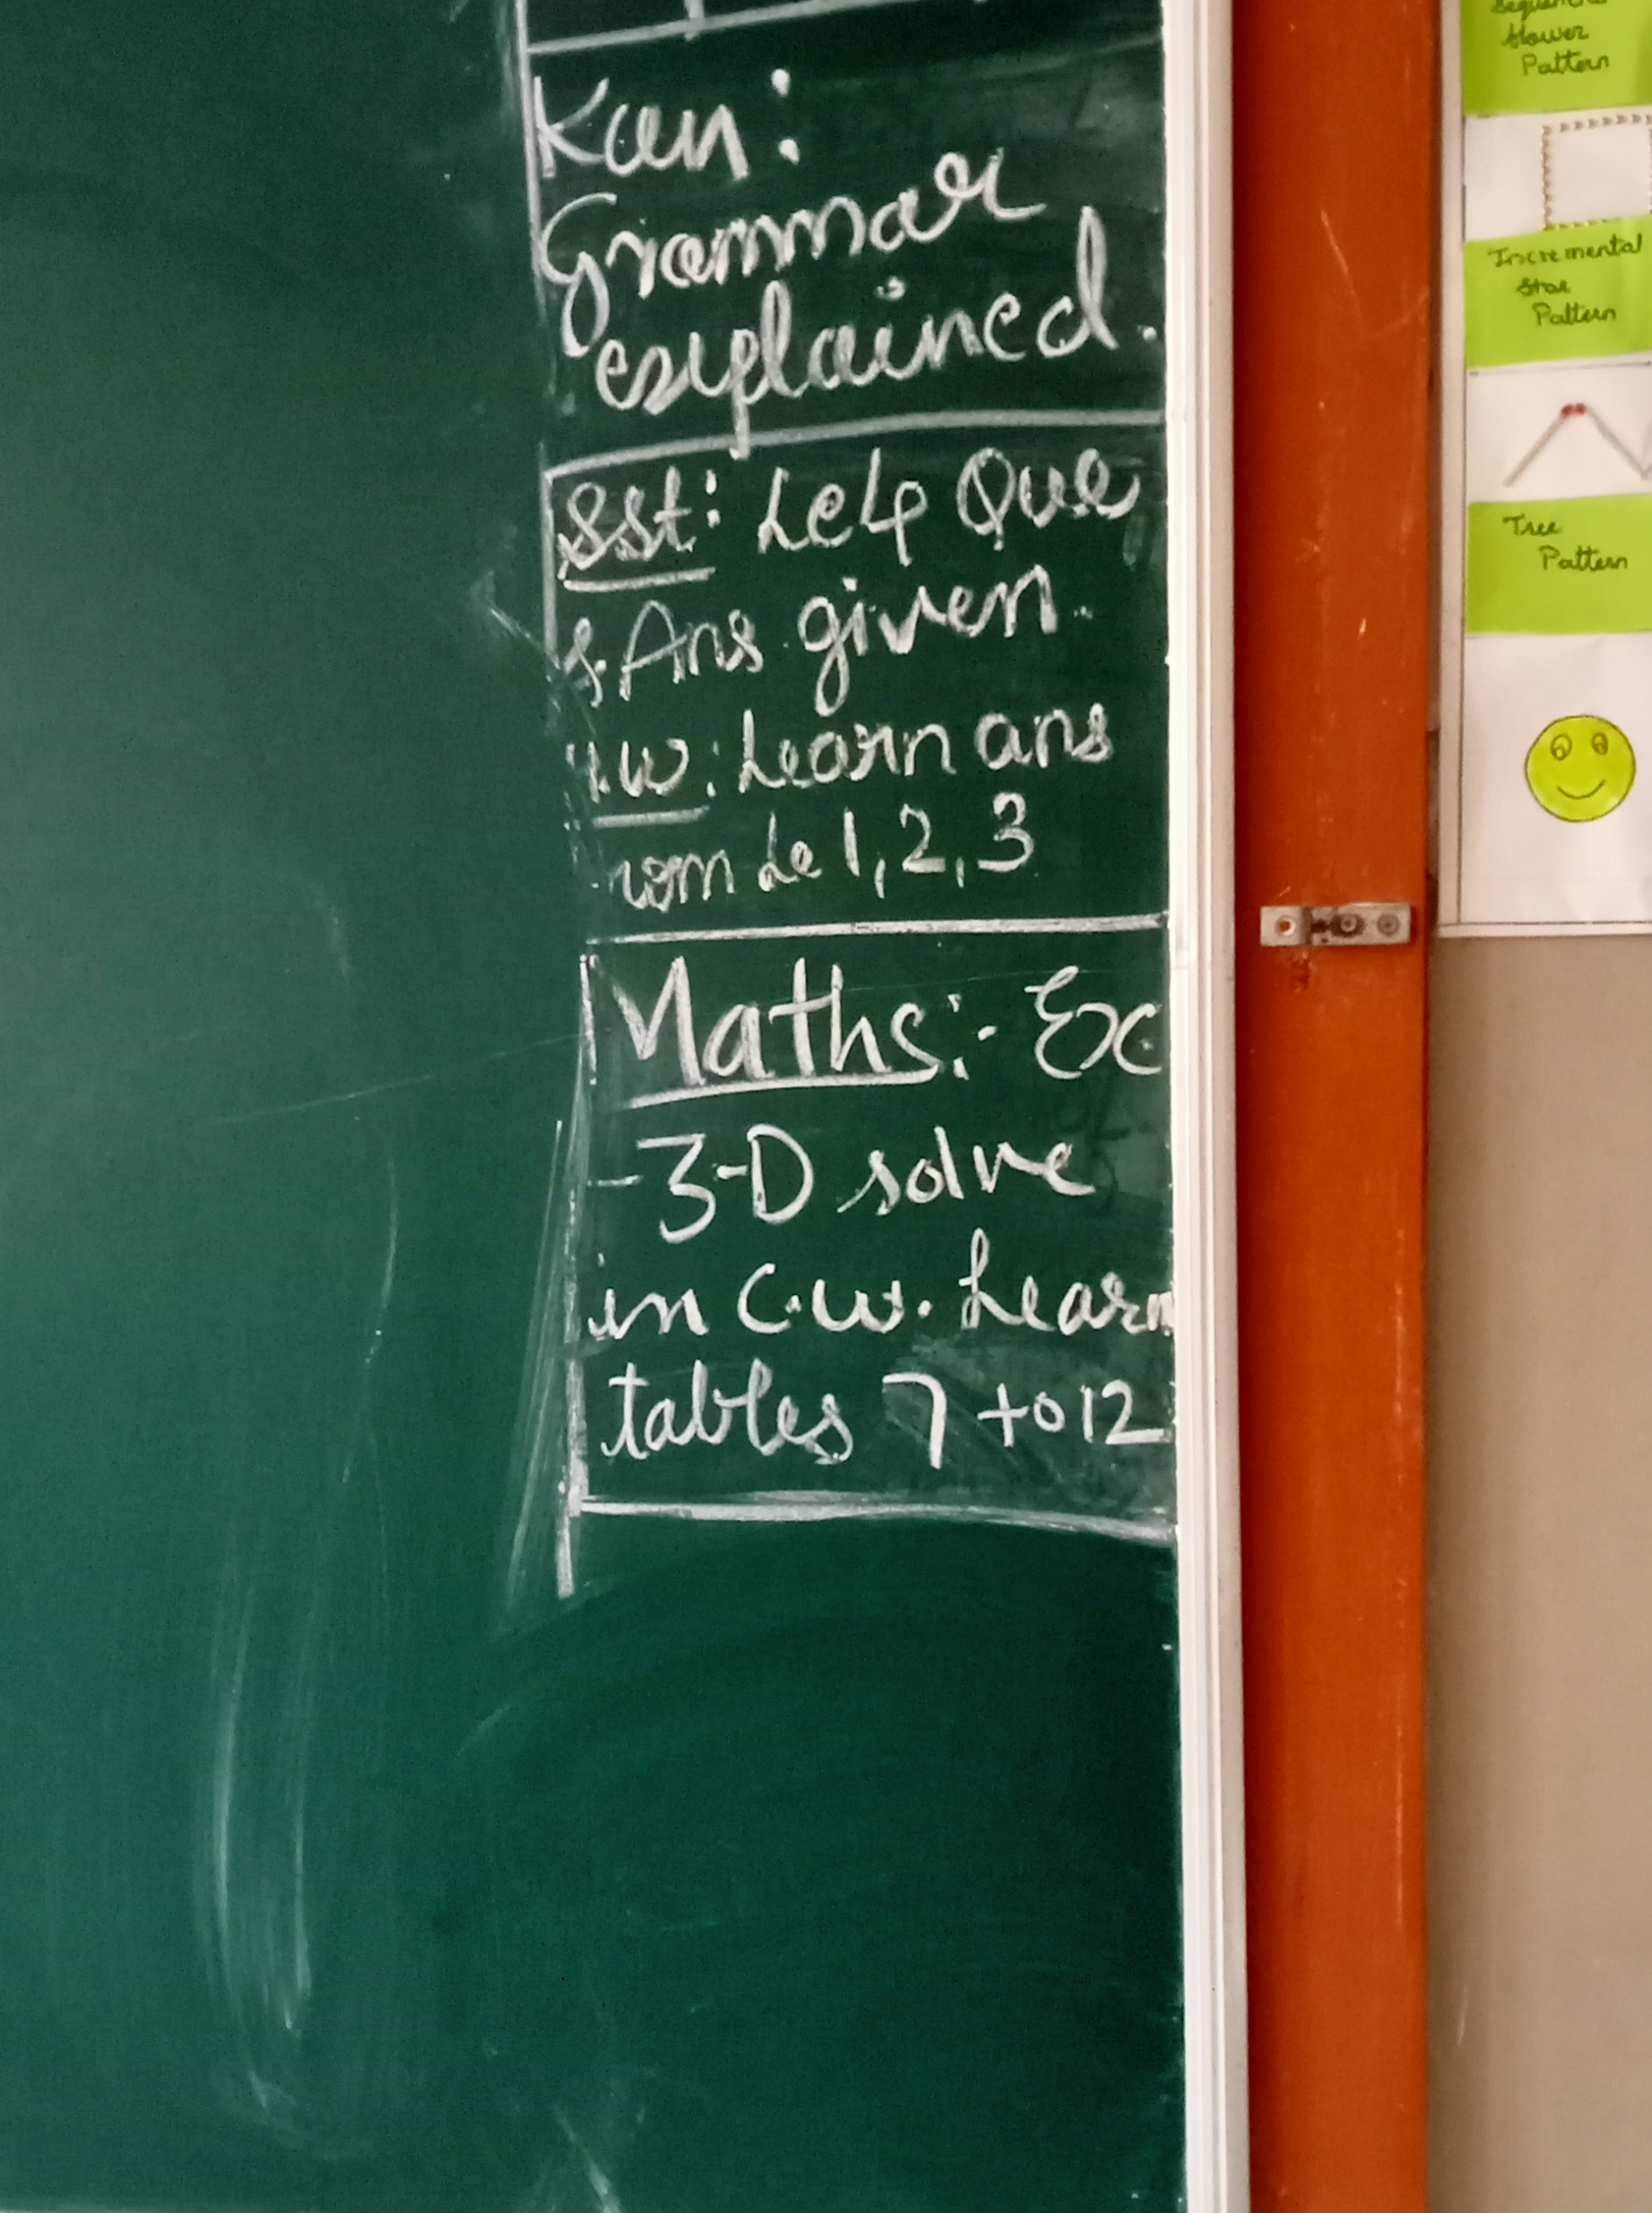 Kan:
Grammar
explained.
SSt: Le4 Que
& Ans given.
H.W: Learn ans
from Le 1, 2, 3
Maths:- Ex
-3-D solve
in C.W. Learn
tables 7 to 12
Flower
Pattern
Incremental
Star
Pattern
Tree
Pattern